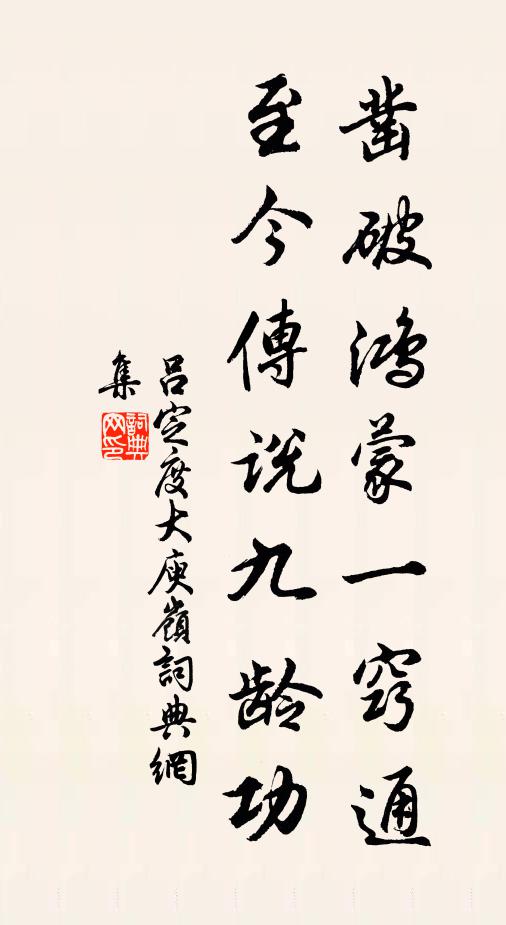 凿破鸿蒙一窍通
至今傳说九龄功
吕定度大庾嶺詞典網
集
詞典网印